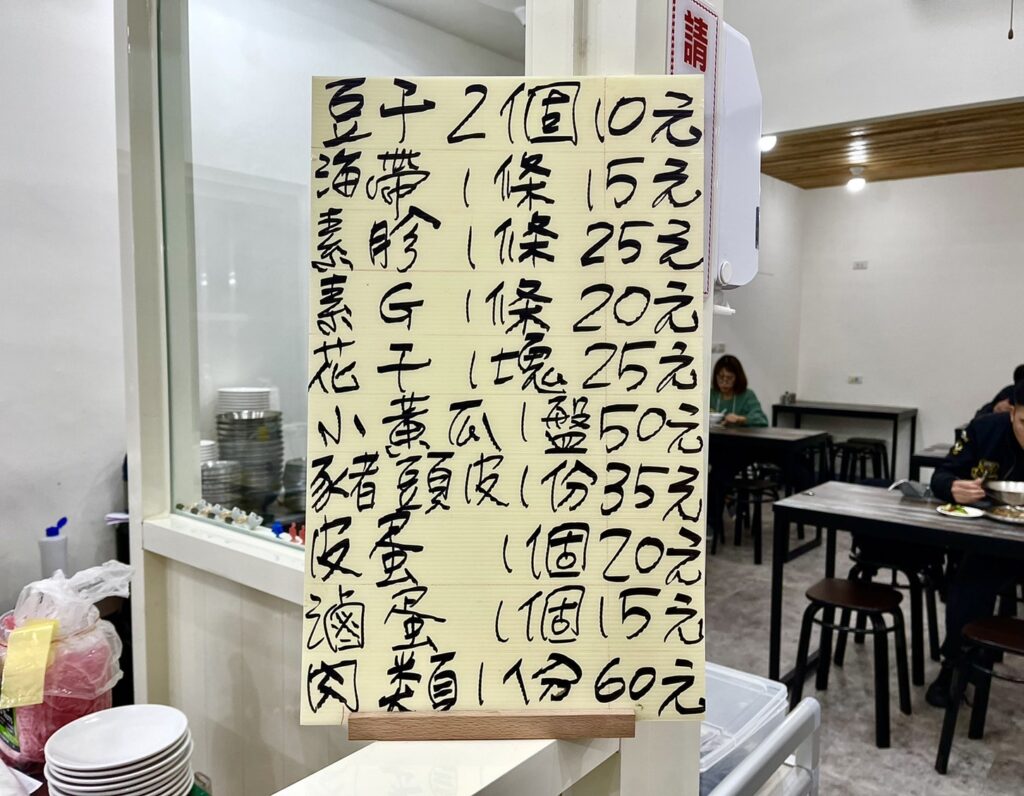 請
豆干 2個 10元
海帶 1條 15元
素肣 1條 25元
素G 1條 20元
花干 1塊 25元
小黃瓜 1盤 50元
豬頭皮 1份 35元
皮蛋 1個 20元
滷蛋 1個 15元
肉類 1份 60元